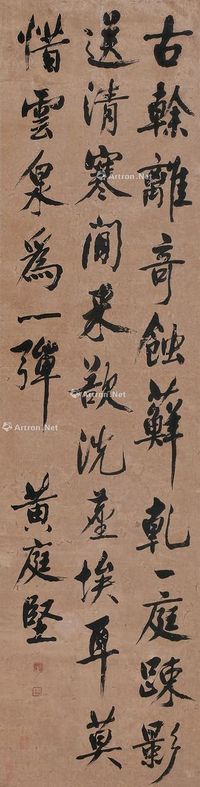 古榦離奇蝕蘚乾一庭踈影
送清寒閒来欲洗塵埃耳莫
惜雲泉爲一彈
黄庭堅
Artron.Net